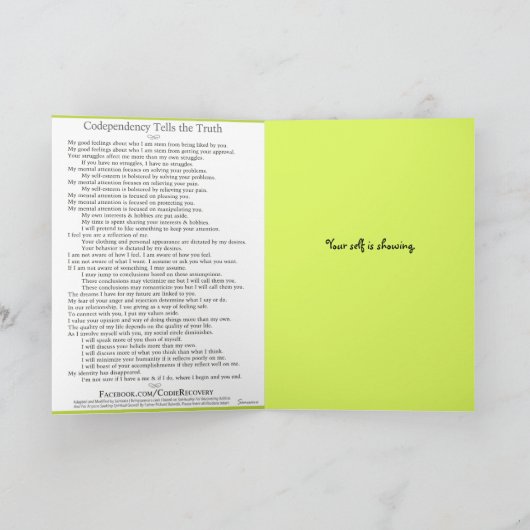 Codependency Tells the Truth
My good feelings about who I am stem from being liked by you.
My good feelings about who I am stem from getting your approval.
Your struggles affect me more than my own struggles.
If you have no struggles, I have no struggles.
My mental attention focuses on solving your problems.
My self-esteem is bolstered by solving your problems.
My mental attention focuses on relieving your pain.
My self-esteem is bolstered by relieving your pain.
My mental attention is focused on pleasing you.
My mental attention is focused on protecting you.
My mental attention is focused on manipulating you.
My own interests & hobbies are put aside.
My time is spent sharing your interests & hobbies.
I will pretend to like something to keep your attention.
I feel you are a reflection of me.
Your clothing and personal appearance are dictated by my desires.
Your behavior is dictated by my desires.
I am not aware of how I feel, I am aware of how you feel.
I am not aware of what I want. I assume or ask you what you want.
If I am not aware of something, I may assume.
I may jump to conclusions based on these assumptions.
These conclusions may victimize me but I will call them you.
These conclusions may romanticize you but I will call them you.
The dreams I have for my future are linked to you.
My fear of your anger and rejection determine what I say or do.
In our relationship, I use giving as a way of feeling safe.
To connect with you, I put my values aside.
I value your opinion and way of doing things more than my own.
The quality of my life depends on the quality of your life.
As I involve myself with you, my social circle diminishes.
I will speak more of you than of myself.
I will discuss your beliefs more than my own.
I will discuss more of what you think than what I think.
I will minimize your humanity if it reflects poorly on me.
I will boast of your accomplishments if they reflect well on me.
My identity has disappeared.
I'm not sure if I have a me & if I do, where I begin and you end.
Facebook.com/CodieRecovery
Your self is showing.